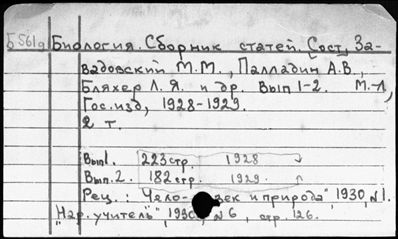 Б561д Биология. Сборник статей. Сост. За-
вадовский М.М., Палладин А.В.,
Бляхер Л.Я. и др. Вып 1-2. М.-Л,
Гос.изд, 1928-1929.
2 т.
Вып1. 223 стр. 1928
Вып.2. 182 стр. 1929.
Рец.: "Чело- век и природа", 1930, №1.
"Нар. учитель", 1930, №6, стр. 126.